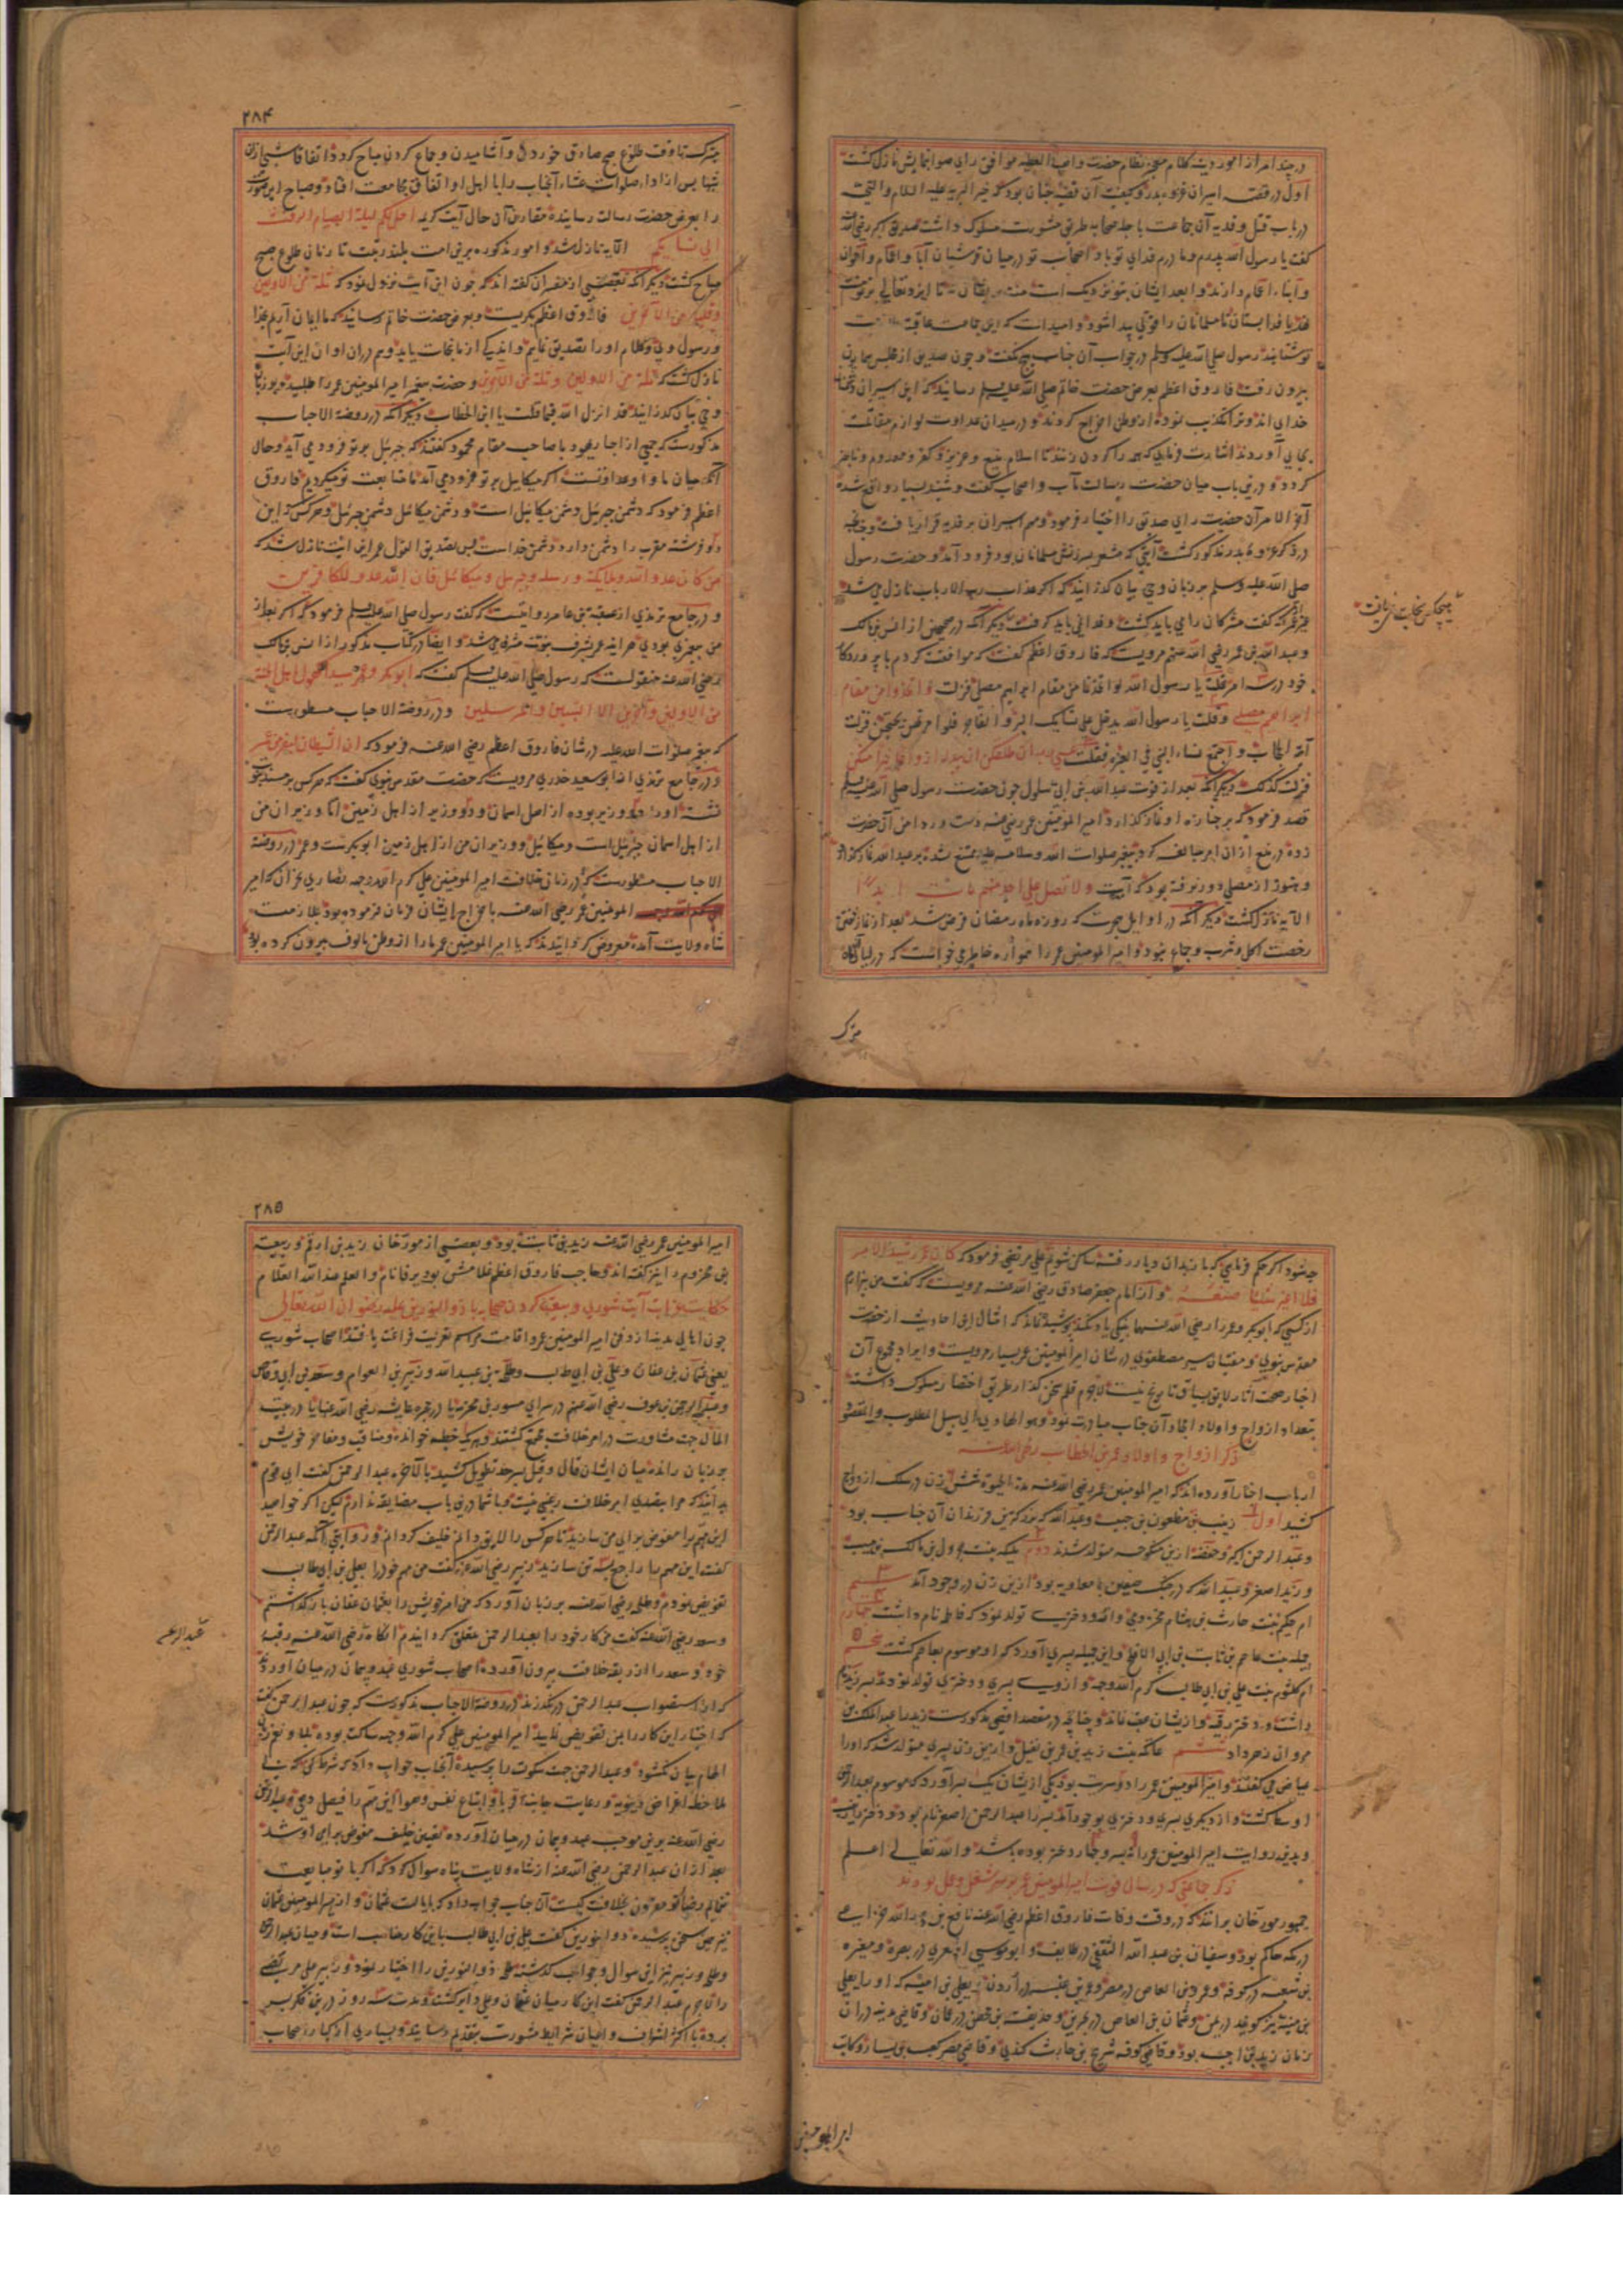 و چند امر از امور دیت کلام معجز نظام حضرت واهب العطیه موافق رای صوابنمایش نازل کشت
اول در قصه اسیران غزوه بدر و کیفیت آن قضیه چنان بود که خیر البریه علیه السلام والتحیه
در باب قتل و فدیه آن جماعت با جله صحابه طریق مشورت مسلوک داشت صدیق اکبر رضی الله
کفت یا رسول الله پدرم و مادرم فدای تو باد اصحاب تو در میان تو شبان آبا و اقوام و اخوان
و ابناء اقام دارند و ابعد ایشان بتو نزدیک است منت بر ایشان نه تا ایزد تعالی بر تو منت
فدیا فدا بستان تا مسلمانان را قوتی پیدا شود و امید است که این جماعت عاقبت
توشتابند رسول صلی الله علیه وسلم در جواب آن جناب هیچ نکفت و چون صدیق از مجلس همایون
بیرون رفت فاروق اعظم بعرض حضرت خاتم صلی الله علیه وسلم رسانید که این اسیران دشمنان
خدای اند و ترا تکذیب نموده از وطن اخراج کردند و در میدان عداوت لوازم مقاتلت
بجای آوردند اشارت فرمای که همه را کردن زنند تا اسلام منیع و عزیز و کفر معدوم و ناچیز
کردد و درین باب میان حضرت رسالت مآب و اصحاب کفت و شنید بسیار واقع شده
آخر الامر آن حضرت رای صدیق را اختیار فرمود و مهم اسیران بر فدیه قرار یافت و چنانچه
در ذکر غزوه بدر مذکور کشت آیتی که مشعر بسرزنش مسلمانان بود فرود آمد و حضرت رسول
صلی الله علیه وسلم بر زبان وحی بیان کذرانید که اکر عذاب رب الارباب نازل می شد
غیر عمر که کفت مشرکان را می باید کشت و فدا نمی باید کرفت دیکر آنکه در صحیحین از انس بن مالک
و عبد الله بن عمر رضی الله عنهم مرویست که فاروق اعظم کفت که موافقت کردم با پروردکار
خود در سه امر قلت یا رسول الله لو اتخذنا من مقام ابراهیم مصلی فنزلت و اتخذوا من مقام
ابراهیم مصلی و قلت یا رسول الله یدخل علی نسائک البر و الفاجر فلو امرتهن یحتجبن فنزلت
آیة الحجاب و اجتمع نساء النبی فی الغیرة فقلت عسی ربه ان طلقکن ان یبدله ازواجا خیرا منکن
فنزلت کذلک دیکر آنکه بعد از فوت عبد الله بن ابی سلول چون حضرت رسول صلی الله علیه وسلم
قصد فرمود که بر جنازه او نماز کذارد امیر المومنین عمر رضی عنه دست در دامن آن حضرت
زده در منع از آن امر مبالغه کرد و پیغمبر صلوات الله وسلامه علیه ممتنع نشده بر عبد الله نماز کذارد
و هنوز از مصلی دور نرفته بود که آیت ولا تصل علی احد منهم مات ابدا
الآیه نازل کشت دیکر آنکه در اوایل هجرت که روزه ماه رمضان فرض شد بعد از نماز خفتن
رخصت اکل و شرب و جماع نبود و امیر المومنین عمر را همواره خاطر می خواست که در لیالی
هیچکس نجات نمی یافت
۲۸۴
متبرکه تا وقت طلوع صبح صادق خوردن و آشامیدن و جماع کردن مباح کردد اتفاقا شبی از آن
شبها پس از ادای صلوات عشاء آنجناب را با اهل او اتفاق مجامعت افتاد و صباح این صورت
را بعرض حضرت رسالت رسانیده مقارن آن حال آیت کریمه احل لکم لیلة الصیام الرفث
الی نسایکم الآیه نازل شد و امور مذکوره برین امت بلند رتبت تا زمان طلوع صبح
مباح کشت دیکر آنکه بعضی از مفسران کفته اند که چون این آیت نزول نمود که ثلة من الاولین
و قلیل من الآخرین فاروق اعظم بکریست و بعرض حضرت خاتم رسانید که ما ایمان آریم بخدا
و رسول وی و کلام او را تصدیق نماییم و اندکی از ما نجات یابد و هم در آن اوان این آیت
نازل کشت که ثلة من الاولین و ثلة من الآخرین و حضرت پیغمبر امیر المومنین عمر را طلبیده بر زبان
وحی بیان کذرانید قد انزل الله فیما قلت یا ابن الخطاب و دیکر آنکه در روضة الاحباب
مذکورست که جمعی از احبار یهود با صاحب مقام محمود کفتند که جبرئیل بر تو فرود می آید و حال
آنکه میان ما و او عداوتست اکر میکاییل بر تو فرود می آمد ما متابعت تو میکردیم فاروق
اعظم فرمود که دشمن جبرئیل دشمن میکائیل است و دشمن میکائیل دشمن جبرئیل و هر کس این
دو فرشته مقرب را دشمن دارد دشمن خداست پس بتصدیق القول عمر این آیت نازل شد که
من کان عدوا لله و ملائکته و رسله و جبریل و میکائیل فان الله عدو للکافرین
و در جامع ترمذی از عقبه بن عامر روایتست که کفت رسول صلی الله علیه وسلم فرمود که اکر بعد از
من پیغمبری بودی هر آینه عمر بشرف نبوت مشرف می شد و ایضا در کتاب مذکور از انس بن مالک
رضی الله عنه منقولست که رسول صلی الله علیه وسلم کفت که ابوبکر و عمر سیدا کهول اهل الجنة
من الاولین والآخرین الا النبیین والمرسلین و در روضة الاحباب مسطورست
که پیغمبر صلوات الله علیه در شان فاروق اعظم رضی الله عنه فرمود که ان الشیطان لیفر من عمر
و در جامع ترمذی از ابو سعید خدری مرویست که حضرت مقدس نبوی کفت که هر کس بر مسند نبوت
نشسته او را دو وزیر بوده از اهل اسمان و دو وزیر از اهل زمین اما وزیران من
از اهل اسمان جبرئیل است و میکائیل و وزیران من از اهل زمین ابو بکرست و عمر در روضة
الاحباب مسطورست که در زمان خلافت امیر المومنین علی کرم الله وجهه نصارای نجران که امیر
المومنین عمر رضی الله عنه باخراج ایشان فرمان فرموده بود بملازمت
شاه ولایت آمده معروض کردانیدند که یا امیر المومنین عمر ما را از وطن مالوف بیرون کرده بود
مترکه
چه شود اکر حکم فرمایی که بازبدان دیار رفته ساکن شویم علی مرتضی فرمود که کان عمر رشید الامر
فلا اغیر شیئا صنعه و از امام جعفر صادق رضی الله عنه مرویست که کفت من بیزارم
از کسی که ابوبکر و عمر را رضی الله عنهما بنیکی یاد نکند پوشیده نماند که امثال این احادیث از حضرت
مقدس نبوی و مقتبان سیر مصطفوی در شان امیر المومنین عمر بسیار مرویست و ایراد مجموع آن
اخبار صحت آثار لایق سیاق تاریخ نیست لاجرم قلم سخن کذار طریق اختصار مسلوک داشته
بتعداد ازواج و اولاد امجاد آن جناب مبادرت نمود و هو الهادی الی سبیل المطلوب والمقصود
ذکر ازواج و اولاد عمر بن الخطاب رضی الله عنه
ارباب اخبار آورده اند که امیر المومنین عمر رضی الله عنه مدة الحیوة شش زن در سلک ازدواج
کشید اول زینب بنت مظعون بن حبیب و عبد الله که بزرکترین فرزندان آن جناب بود
و عبد الرحمن اکبر و حفصه ازین منکوحه متولد شدند دوم ملیکه بنت جرول بن مالک بن مسیب
و زید اصغر و عبید الله که در جنک صفین با معاویه بود ازین زن در وجود آمد سیم
ام حکیم بنت حارث بن هشام مخزومی و از و دختری تولد نمود که فاطمه نام داشت چهارم
جمیله بنت عاصم بن ثابت بن ابی الافلح و این جمیله پسری آورد که او موسوم بعاصم کشت پنجم
ام کلثوم بنت علی بن ابی طالب کرم الله وجهه و از وی پسری و دختری تولد نمود پسر زید نام
داشت و دختر رقیه و از ایشان عقب نماند و چنانچه در مقصد اقصی مذکورست زید را عبد الملک بن
مروان زهر داد ششم عاتکه بنت زید بن عمر بن نفیل و ازین زن پسری متولد شد که او را
عیاض می کفتند و امیر المومنین عمر را دو سریت بود یکی از ایشان یک پسر آورد که موسوم بعبد الرحمن
اوسط کشت و از دیکری پسری و دختری بوجود آمد پسر را عبد الرحمن اصغر نام بود و دختر زینب
و بدین روایت امیر المومنین عمر را نه پسر و چهار دختر بوده باشد والله تعالی اعلم
ذکر جماعتی که در سال فوت امیر المومنین عمر بر سر شغل و عمل بودند
جمهور مورخان برانند که در وقت وفات فاروق اعظم رضی الله عنه نافع بن عبد الله خزاعی
در مکه حاکم بود و سفیان بن عبد الله الثقفی در طایف و ابو موسی اشعری در بصره و مغیره
بن شعبه در کوفه و عمرو بن العاص در مصر و عمیر بن عنبسه در اردن و یعلی بن امیه که او را یعلی
بن منیه نیز کویند در یمن و عثمان بن ابی العاص در بحرین و حذیفه بن محصن در عمان و قاضی مدینه در آن
زمان زید بن اخت بود و قاضی کوفه شریح بن حارث کندی و قاضی مصر کعب بن یسار و کاتب
۲۸۵
امیر المومنین عمر رضی الله عنه زید بن ثابت بود و بعضی از مورخان زید بن ارقم و ربیعه
بن مخزوم را نیز کفته اند و حاجب فاروق اعظم غلامش بود یرفا نام والعلم عند الله العلام
حکایت جزئیات آیت شوری و بیعت کردن صحابه با ذو النورین علیه رضوان الله تعالی
چون اهالی مدینه از دفن امیر المومنین عمر و اقامت مراسم تعزیت فراغت یافتند اصحاب شوری
یعنی عثمان بن عفان و علی بن ابی طالب و طلحه بن عبید الله و زبیر بن العوام و سعد بن ابی وقاص
و عبد الرحمن بن عوف رضی الله عنهم در سرای مسور بن مخرمه یا در حجره عایشه رضی الله عنها یا در بیت
المال جهت مشاورت در امر خلافت مجتمع کشتند و هر یک خطبه خوانده و مناقب و مفاخر خویش
بر زبان رانده میان ایشان قال و قیل بسرحد تطویل کشید بالآخره عبد الرحمن کفت ای قوم
بدانید که مرا بتصدی امر خلافت رغبتی نیست و با شما درین باب مضایقه ندارم لیکن اکر خواهید
این مهم را مفوض برای من سازید تا هر کس را لایق دانم خلیفه کردانم و روایتی آنکه عبد الرحمن
کفت این مهم را راجع بسه تن سازید زبیر رضی الله عنه کفت من مهم خود را بعلی بن ابی طالب
تفویض نمودم و طلحه رضی الله عنه بر زبان آورد که من امر خویش را بعثمان عفان بازکذاشتم
و سعد رضی الله عنه کفت من کار خود را بعبد الرحمن متعلق کردانیدم آنکاه رضی الله عنه رقبه
خود و سعد را از ربقه خلافت بیرون آورده اصحاب شوری عهد و پیمان در میان آوردند
که از استصواب عبد الرحمن در نکذرند در روضة الاحباب مذکورست که چون عبد الرحمن کفت
که اختیار این کار را بمن تفویض نمایید امیر المومنین علی کرم الله وجهه ساکت بوده بلا و نعم زبان
الهام بیان نکشود و عبد الرحمن جهت سکوت را پرسیده آنجناب جواب داد که شرط می کنم که بی
ملاحظه اغراض دنیویه و رعایت جانب اقربا و اتباع نفس و هوا این مهم را فیصل دهی عبد الرحمن
رضی الله عنه برین موجب عهد و پیمان در میان آورده تعیین خلیفه مفوض برای او شد
بعد از آن عبد الرحمن رضی الله عنه از شاه ولایت پناه سوال کرد که اکر با تو مبایعت
ننمایم رضا تو مقرون بخلافت کیست آن جناب جواب داد که بایالت عثمان و از امیر المومنین عثمان
نیز همین سخن پرسیده ذو النورین کفت علی بن ابی طالب باین کار مناسب است و میان عبد الرحمن
و طلحه و زبیر نیز این سوال و جواب کذشته طلحه ذو النورین را اختیار نمود و زبیر علی مرتضی
را لاجرم عبد الرحمن کفت این کار میان عثمان و علی دایر کشت و مدت سه روز درین فکر بسر
برده با اکثر اشراف و اعیان شرایط مشورت بتقدیم رسانید و بسیاری از کبار اصحاب
عبد الرحمن
امیر المومنین